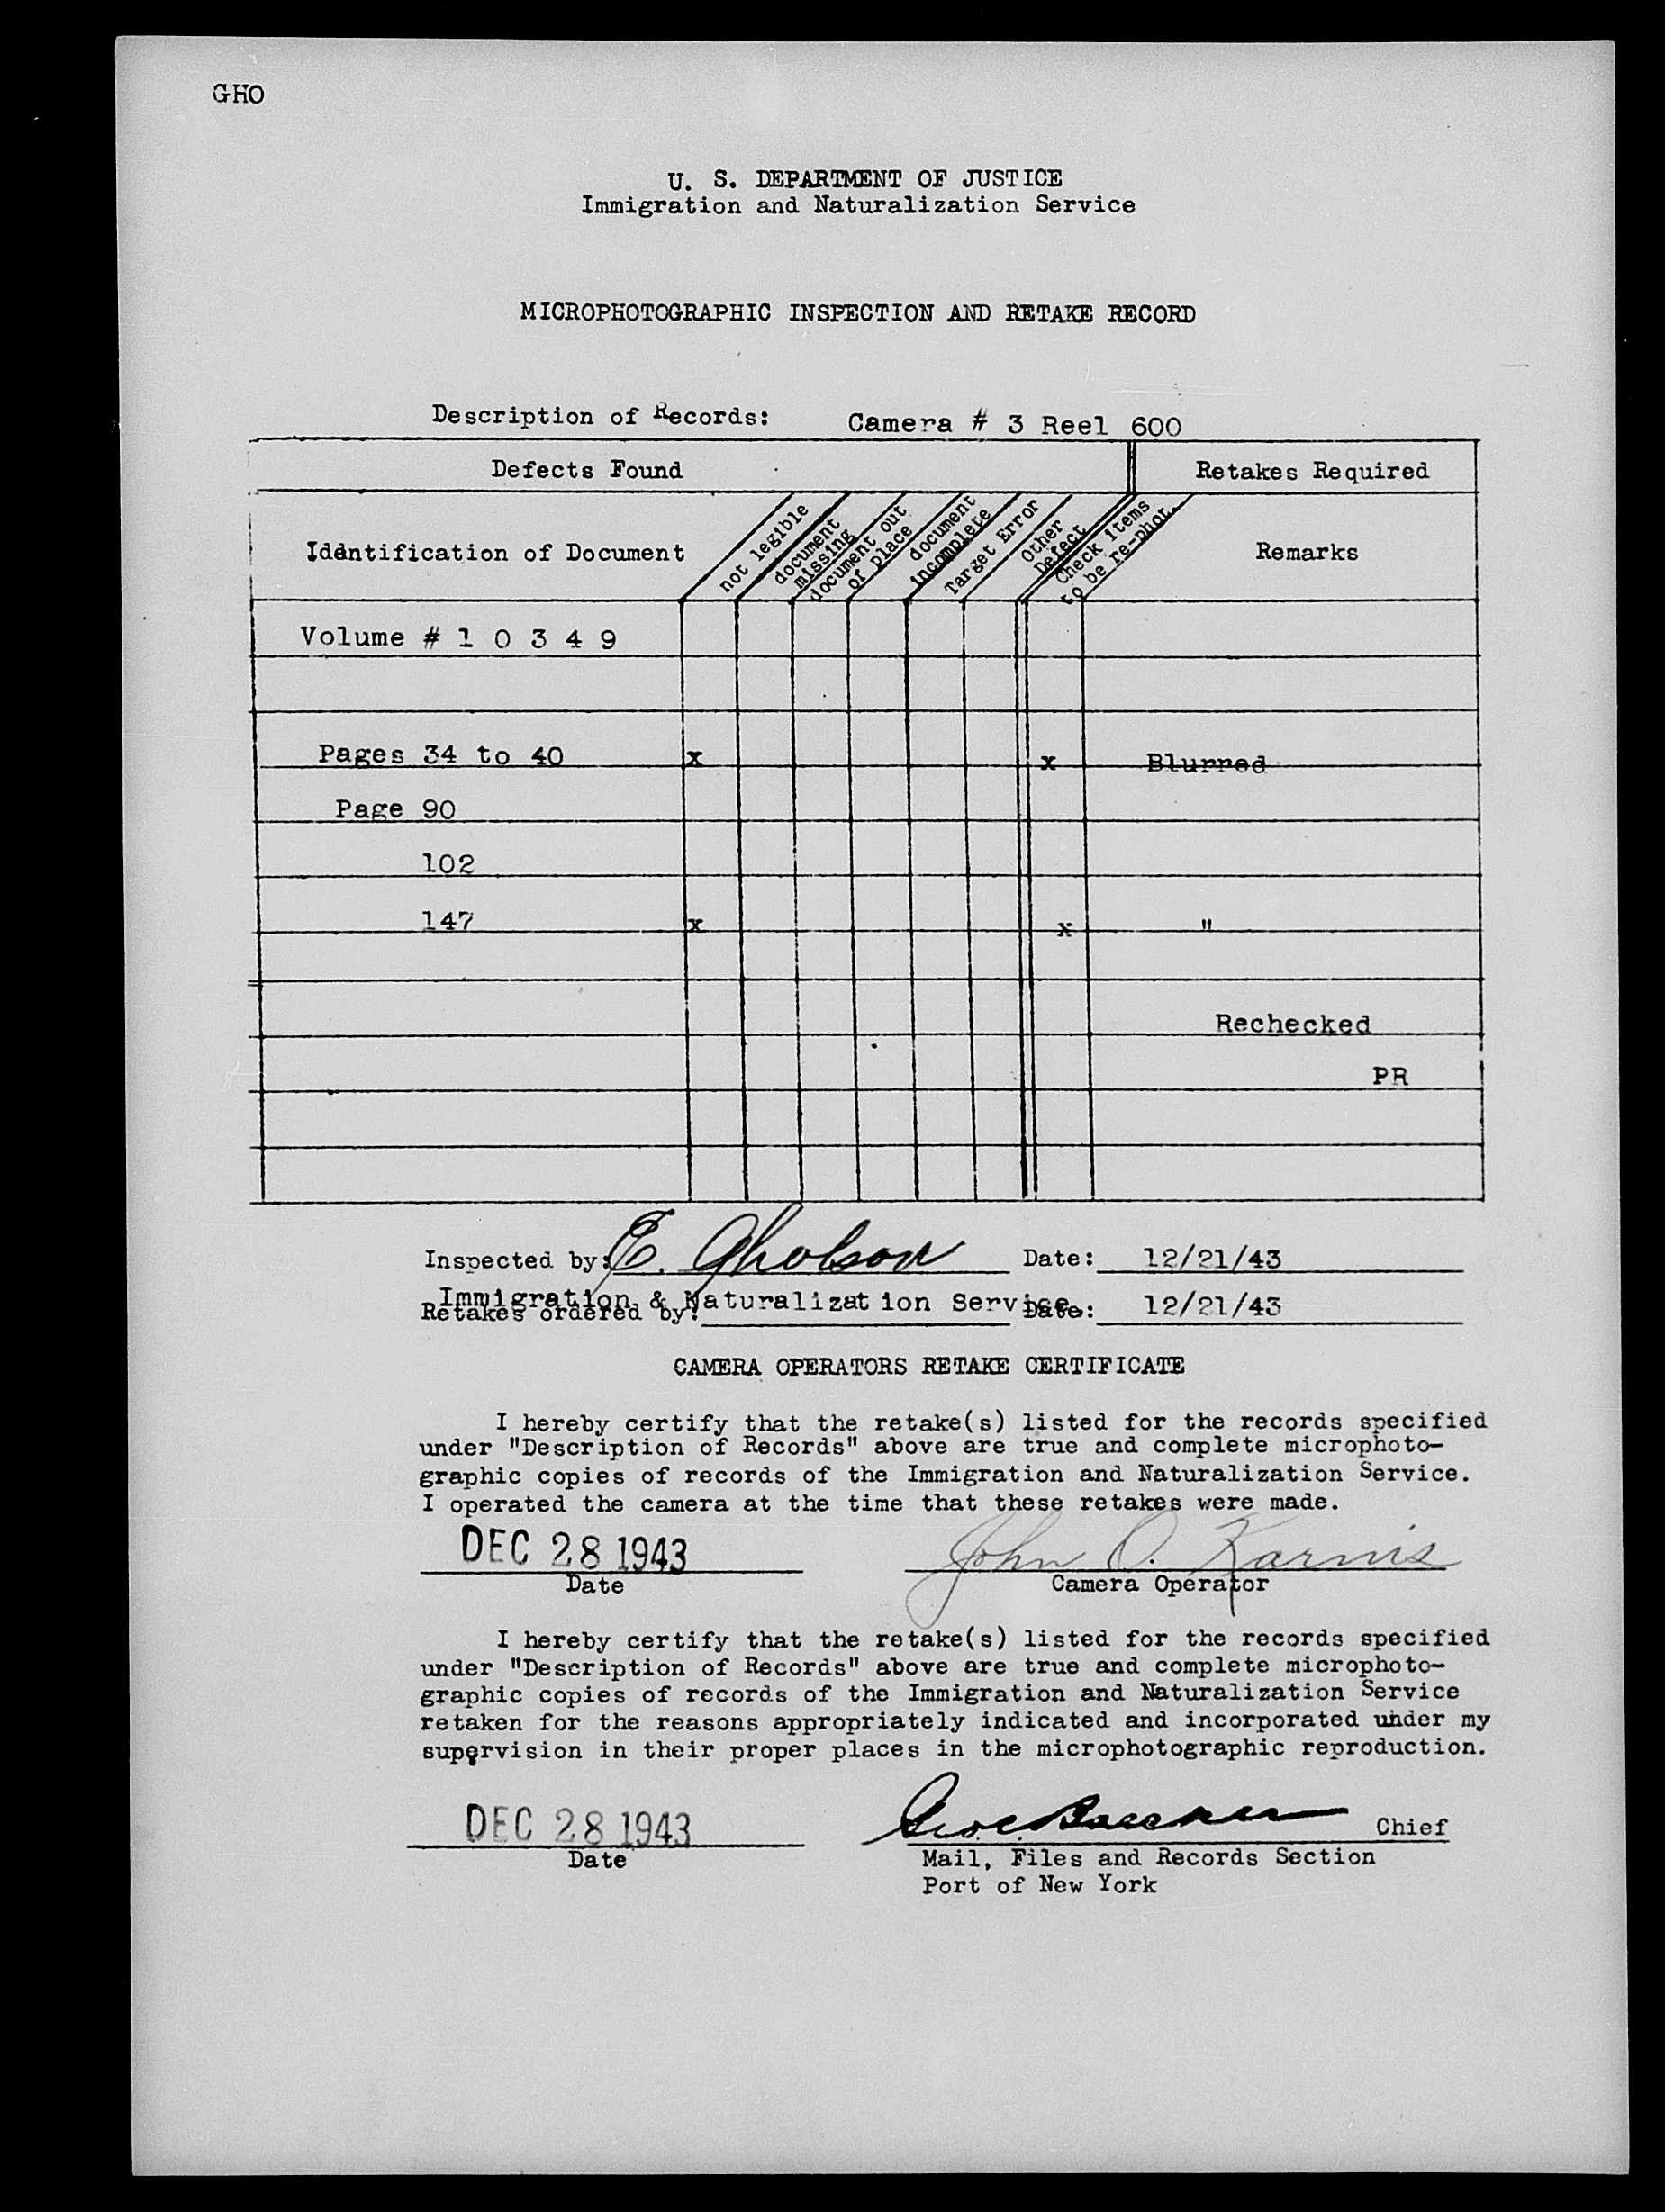 GHO
U. S. DEPARTMENT OF JUSTICE
Immigration and Naturalization Service
MICROPHOTOGRAPHIC INSPECTION AND RETAKE RECORD
Description of Records: Camera # 3 Reel 600
Defects Found Retakes Required
Identification of Document
not legible
document missing
document out of place
document incomplete
Target Error
Other Defect
Check items to be re-phot.
Remarks
Volume # 1 0 3 4 9
Pages 34 to 40 x x Blurred
Page 90
102
147 x x "
Rechecked
PR
Inspected by: E. Gholson Date: 12/21/43
Immigration & Naturalization Service
Retakes ordered by: Date: 12/21/43
CAMERA OPERATORS RETAKE CERTIFICATE
I hereby certify that the retake(s) listed for the records specified
under "Description of Records" above are true and complete microphoto-
graphic copies of records of the Immigration and Naturalization Service.
I operated the camera at the time that these retakes were made.
DEC 28 1943 John O. Karnis
Date Camera Operator
I hereby certify that the retake(s) listed for the records specified
under "Description of Records" above are true and complete microphoto-
graphic copies of records of the Immigration and Naturalization Service
retaken for the reasons appropriately indicated and incorporated under my
supervision in their proper places in the microphotographic reproduction.
DEC 28 1943 Chief
Date Mail, Files and Records Section
Port of New York